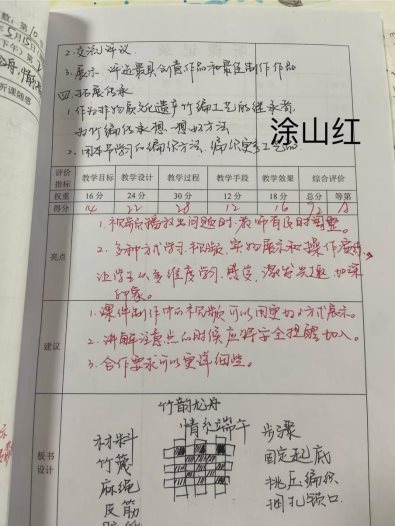 2.交流评议
3.展示 评选最具创意作品和最佳制作作品
四.拓展传承
1.作为非物质文化遗产竹编工艺的继承者,
为竹编传承想一想办法
2.用本节学习的编织方法,编织更多工艺品
涂山红
评价指标 教学目标 教学设计 教学过程 教学手段 教学效果 综合评价
权重 16分 24分 30分 12分 18分 总分 等第
得分 14 22 28 12 16 92 A
亮点
1.视频播放出问题时,教师有及时调整。
2.多种方式学习,视频,实物展示和操作演练,
让学生从多维度学习,感受,激发兴趣,加深
印象。
建议
1.课件制作中的视频可以用更好的方式展示。
2.讲解注意点的时候应将安全提醒加入。
3.合作要求可以更详细些。
板书设计
竹韵龙舟
情系端午
材料 步骤
竹篾 固定起底
麻绳 挑压编织
皮筋 捆扎锁口